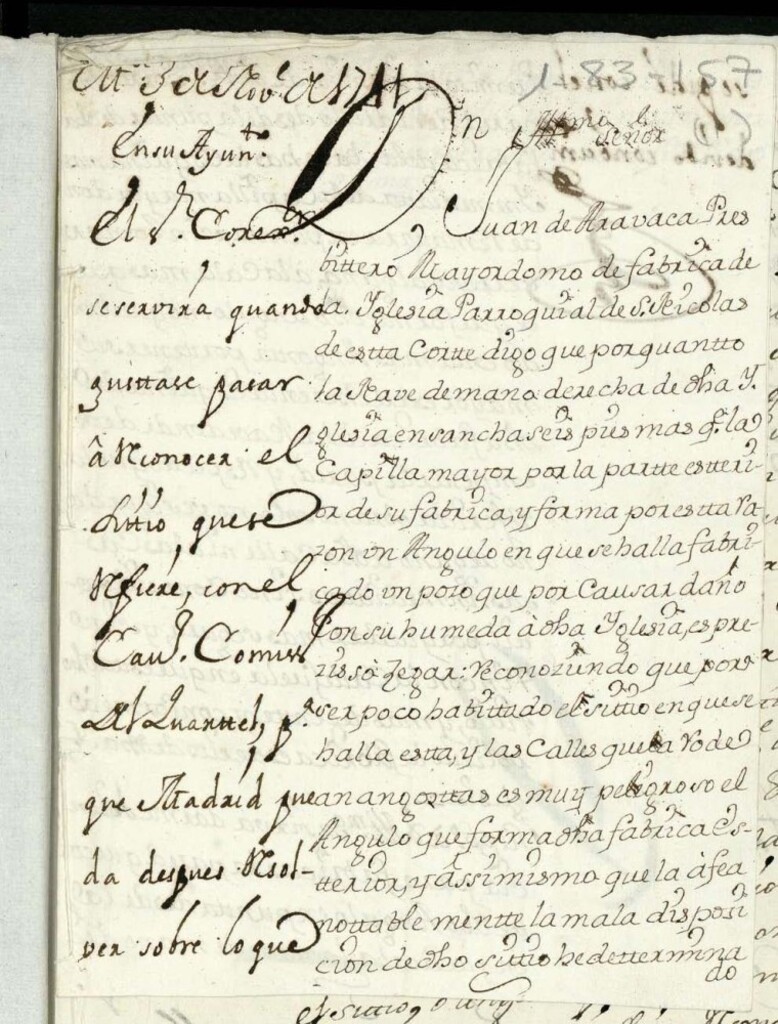 M.d 3 de Nov.e de 1711
En su Ayun.to
El s.r Corex.or
se servira quando
gusttase pasar
â Reconocer el
Sittio que se
Refiere, con el
Cav.o Comiss.o
del Quarttel, p.a
que Madrid pue
da despues Resol-
ver sobre lo que
183 157
Señor
Dn Juan de Aravaca Pres
bittero Mayordomo de fabrica de
la Yglesia Parroquial de S. Nicolas
de estta Cortte digo que por quantto
la Nave de mano derecha de dha Y.
glesia ensancha seis pies mas q.e la
Capilla mayor por la partte estteri
or de su fabrica, y forma por estta Ra
zon vn Angulo en que se halla fabri-
cado vn pozo que por Causar daño
Con su humeda à dha Yglesia, es pre
zisso Zegar: Reconoziendo que por
ser poco habittado el sittio en que se
halla estta, y las Calles que la Rode
an angosttas es muy peligroso el
Angulo que forma dha fabrica Es-
tterior, y assimismo que la àfea
nottable mentte la mala disposi
cion de dho sittio he dettermina
do